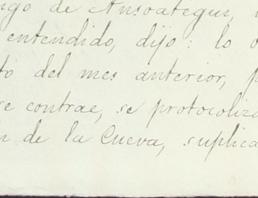 ngo de Ansoategui,
entendido, dijo: lo o
to del mes anterior, p
se contrae, se protocoliz
n de la Cueva, suplica